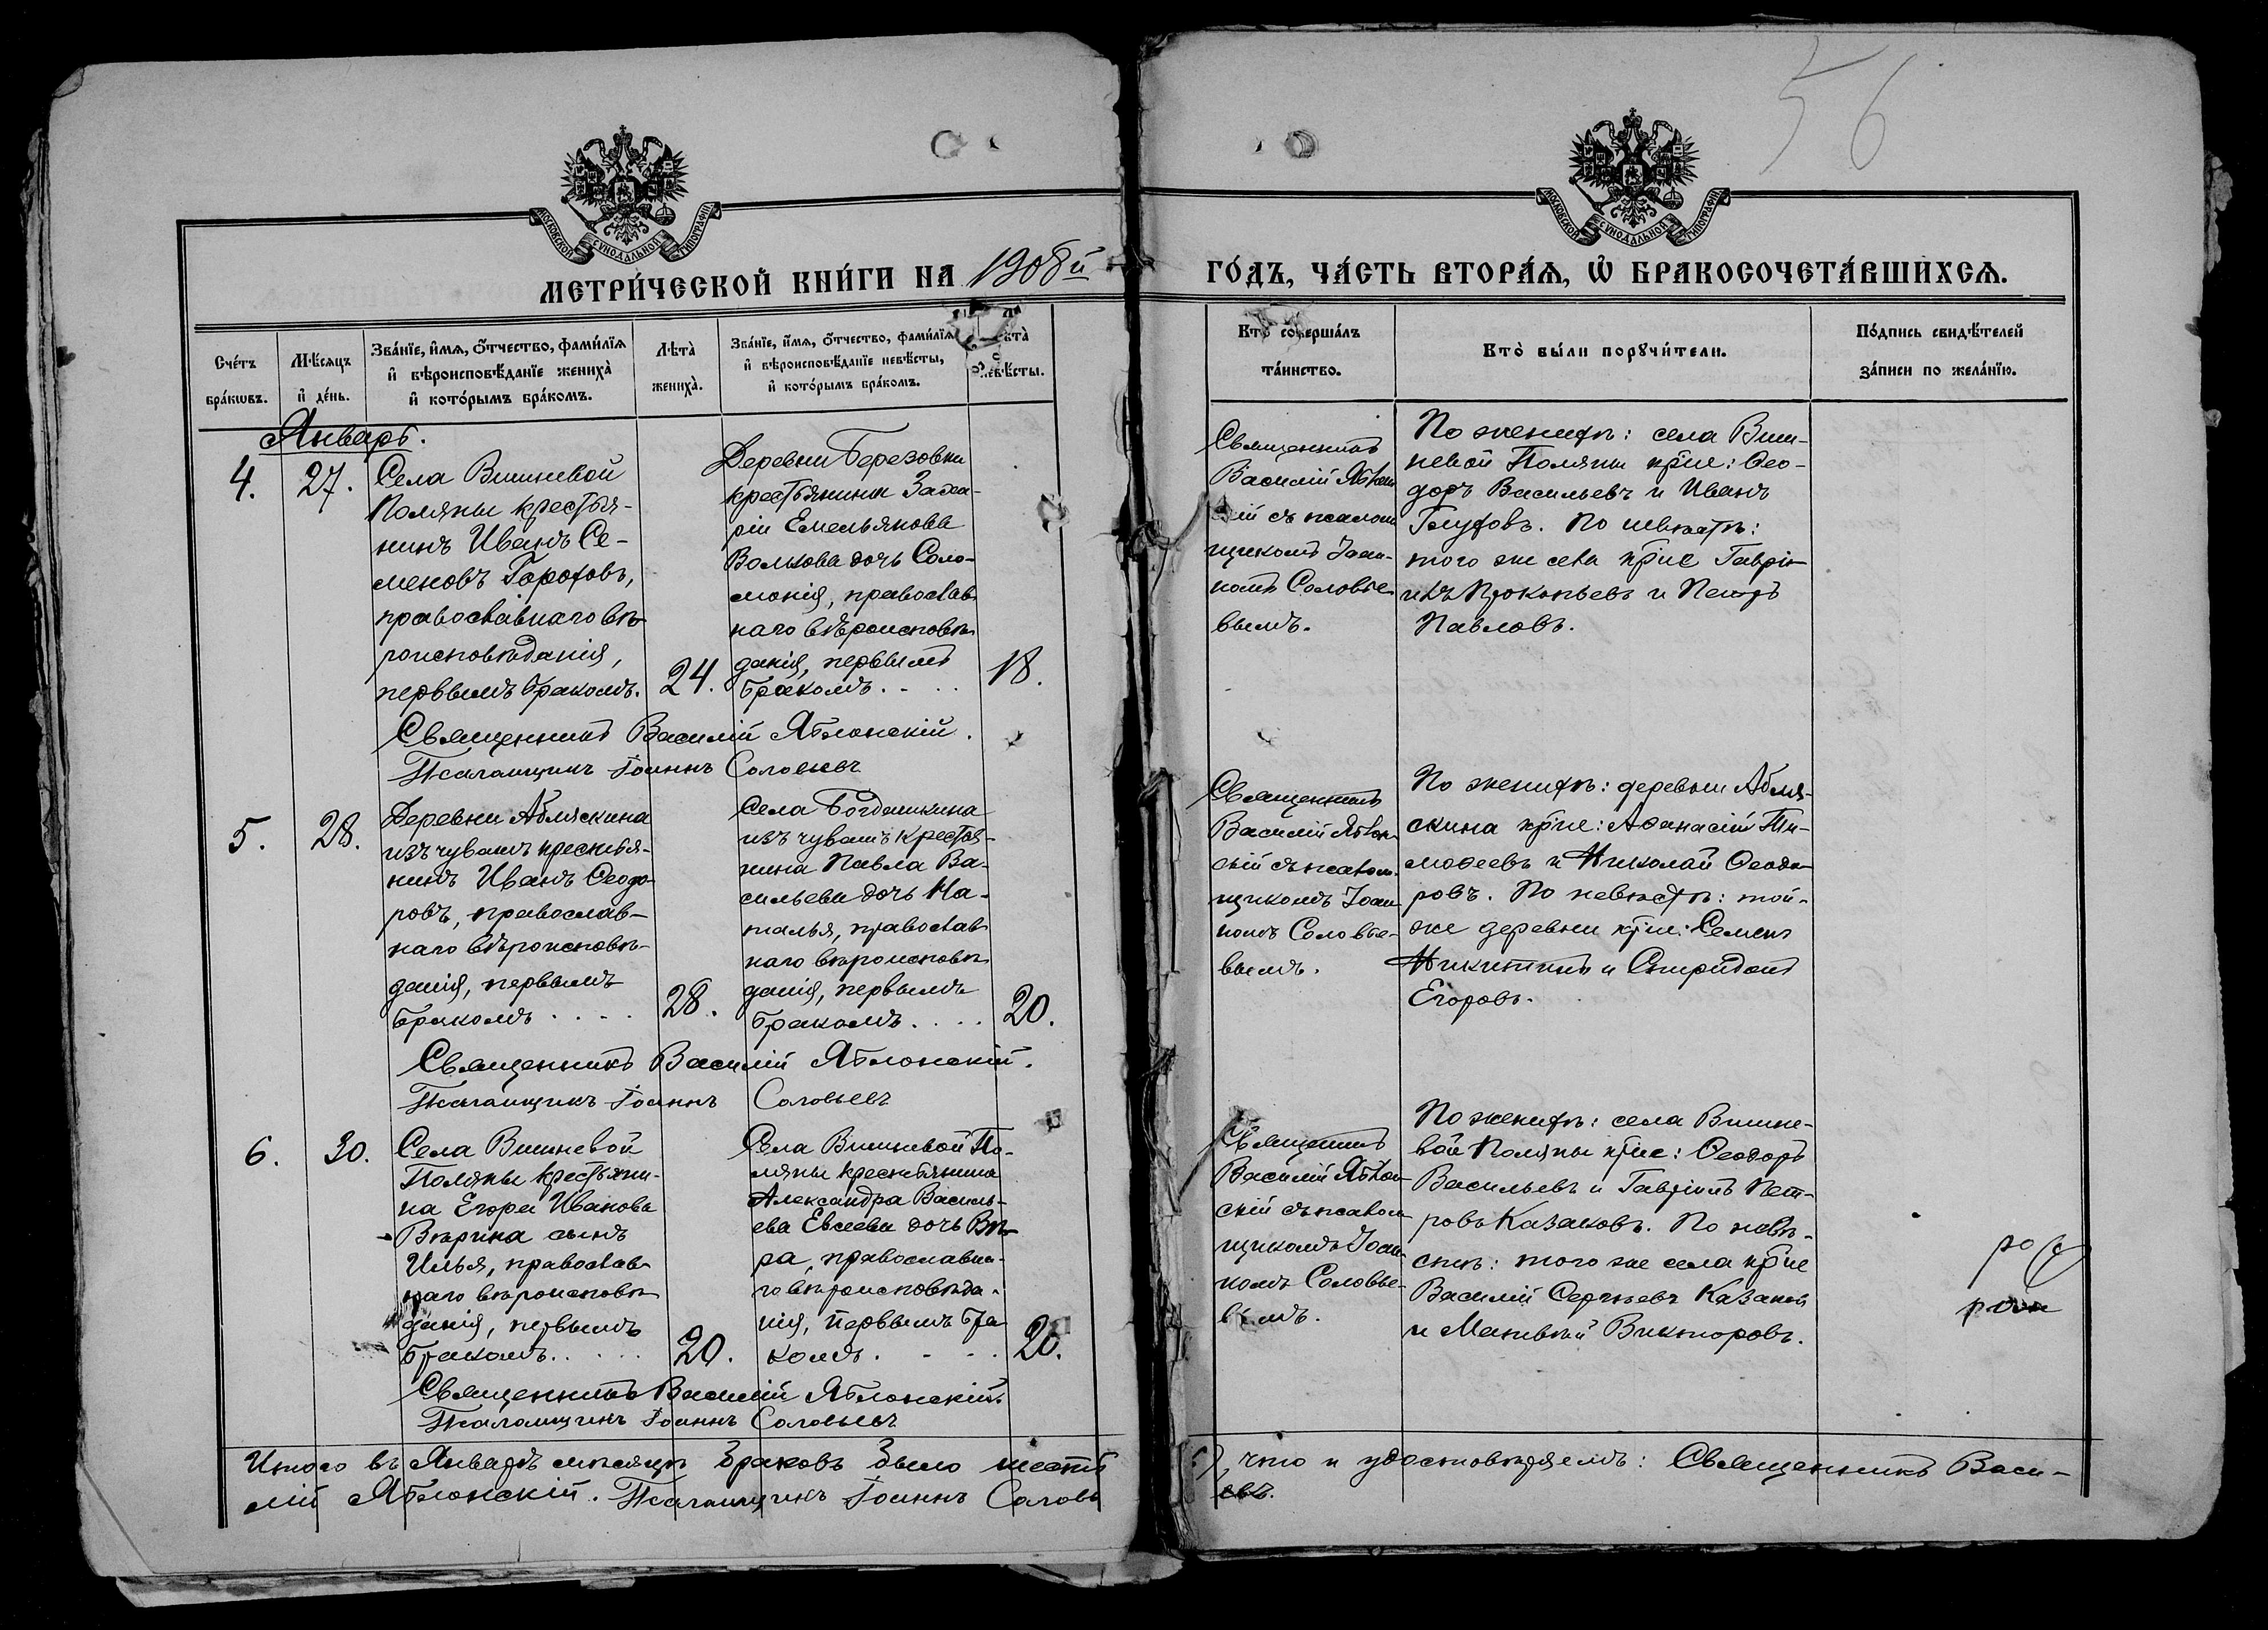 56
МОСКОВСКОЙ СѴНОДАЛЬНОЙ ТИПОГРАФІИ
МОСКОВСКОЙ СѴНОДАЛЬНОЙ ТИПОГРАФІИ
МЕТРИ́ЧЕСКОЙ КНИ́ГИ НА 1908й
ГО́ДЪ, ЧА́СТЬ ВТОРА́Ѧ, Ѡ҆ БРАКОСОЧЕТА́ВШИХСѦ.
Сче́тъ
бра́кѡвъ.
Мѣ́сѧцъ
и҆ де́нь.
Зва́нїе, и҆́мѧ, ѻ҆́тчество, фами́лїѧ
и҆ вѣроисповѣ́данїе жениха̀
и҆ кото́рымъ бра́комъ.
Лѣта̀
жениха̀.
Зва́нїе, и҆́мѧ, ѻ҆́тчество, фами́лїѧ
и҆ вѣроисповѣ́данїе невѣ́сты,
и҆ кото́рымъ бра́комъ.
Лѣта̀
невѣ́сты.
Кто̀ соверша́лъ
та́инство.
Кто̀ бы́ли порꙋчи́тели.
По́дпись свидѣ́телей
за́писи по жела́нїю.
Январь.
4.
27.
Села Вишневой
Поляны крестья-
нинъ Иванъ Се-
меновъ Гороховъ,
православнаго вѣ-
роисповѣданія,
первымъ бракомъ.
24.
Деревни Березовки
крестьянина Заха-
рія Емельянова
Волкова дочь Соло-
монія, православ-
наго вѣроисповѣ-
данія, первымъ
бракомъ. . . .
18.
Священникъ
Василій Яблон
скій съ псалом
щикомъ Іоан-
номъ Соловье-
вымъ.
По женихѣ: села Виш-
невой Поляны кр̃не: Ѳео-
доръ Васильевъ и Иванъ
Глуховъ. По невѣстѣ:
того же села кр̃не Гаврі-
илъ Прокопьевъ и Петръ
Павловъ.
Священникъ Василій Яблонскій.
Псаломщикъ Іоаннъ Соловьевъ
5.
28.
Деревни Абляскина
изъ чувашъ крестья-
нинъ Иванъ Ѳеодо-
ровъ, православ-
наго вѣроисповѣ-
данія, первымъ
бракомъ . . . .
28.
Села Богдашкина
изъ чувашъ крестья-
нина Павла Ва-
сильева дочь На-
талья, православ-
наго вѣроисповѣ-
данія, первымъ
бракомъ. . . .
20.
Священникъ
Василій Яблон-
скій съ псалом-
щикомъ Іоан
номъ Соловье-
вымъ.
По женихѣ: деревни Абля-
скина кр̃не: Аѳанасій Ти-
моѳеевъ и Николай Ѳеодо-
ровъ. По невѣстѣ: той-
же деревни кр̃не: Семенъ
Никитинъ и Спиридонъ
Егоровъ.
Священникъ Василій Яблонскій.
Псаломщикъ Іоаннъ Соловьевъ
6.
30.
Села Вишневой
Поляны крестьяни-
на Егора Иванова
Вѣрина сынъ
Илья, православ-
наго вѣроисповѣ-
данія, первымъ
бракомъ. . . . .
20.
Села Вишневой По-
ляны крестьянина
Александра Василь-
ева Евсеева дочь Вѣ-
ра, православна-
го вѣроисповѣда-
нія, первымъ бра
комъ. . . . .
20.
Священникъ
Василій Яблон-
скій съ псалом
щикомъ Іоан-
номъ Соловье-
вымъ.
По женихѣ: села Вишне-
вой Поляны кр̃не: Ѳеодоръ
Васильевъ и Гавріилъ Пет-
ровъ Казаковъ. По невѣ-
стѣ: того же села кр̃не
Василій Сергѣевъ Казаков
и Матвѣй Викторовъ.
Священникъ Василій Яблонскій.
Псаломщикъ Іоаннъ Соловьевъ
Итого въ Январѣ мѣсяцѣ браковъ было шесть
(6) что и удостовѣряемъ: Священникъ Васи-
лій Яблонскій. Псаломщикъ Іоаннъ Соловь
евъ.